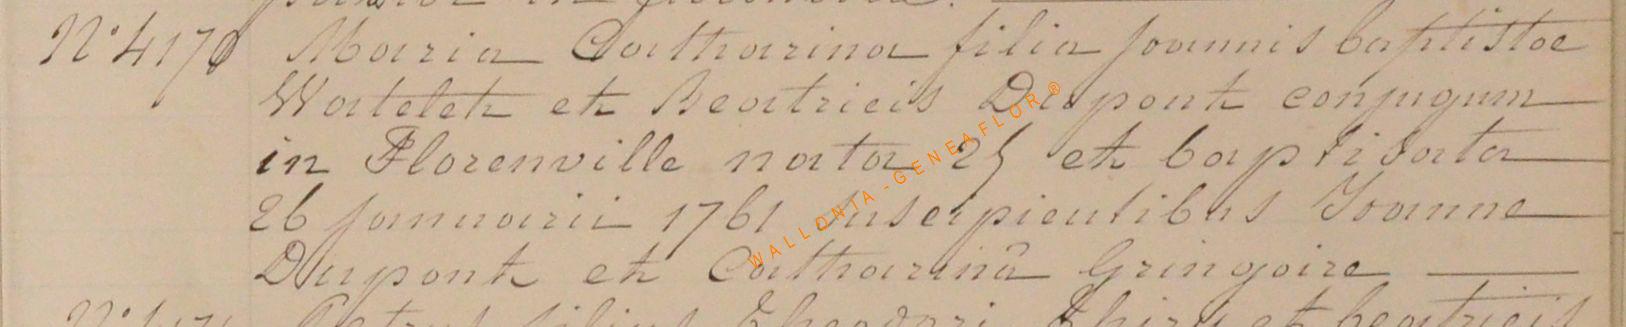 N° 4170 Maria Catharina filia joannis baptistae
Watelet et Beatricis Dupont conjugum
in Florenville nata 25 et baptisata
26 januarii 1761 suscipientibus Joanne
Dupont et Catharinâ Gringoire
Petrus filius Theodori Thiry et beatricis
WALLONIA-GENEAFLOR®